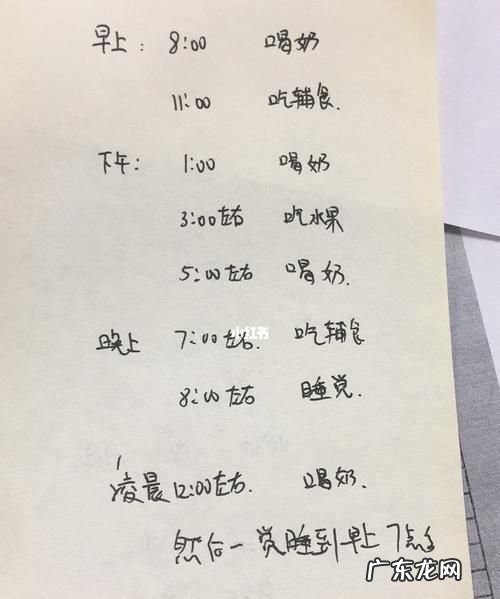 早上: 8:00 喝奶
11:00 吃辅食.
下午: 1:00 喝奶
3:00左右 吃水果
5:00左右 喝奶.
小红书
晚上 7:00左右. 吃辅食
8:00左右 睡觉.
凌晨12:00左右. 喝奶.
然后一觉睡到早上7点多
广东龙网